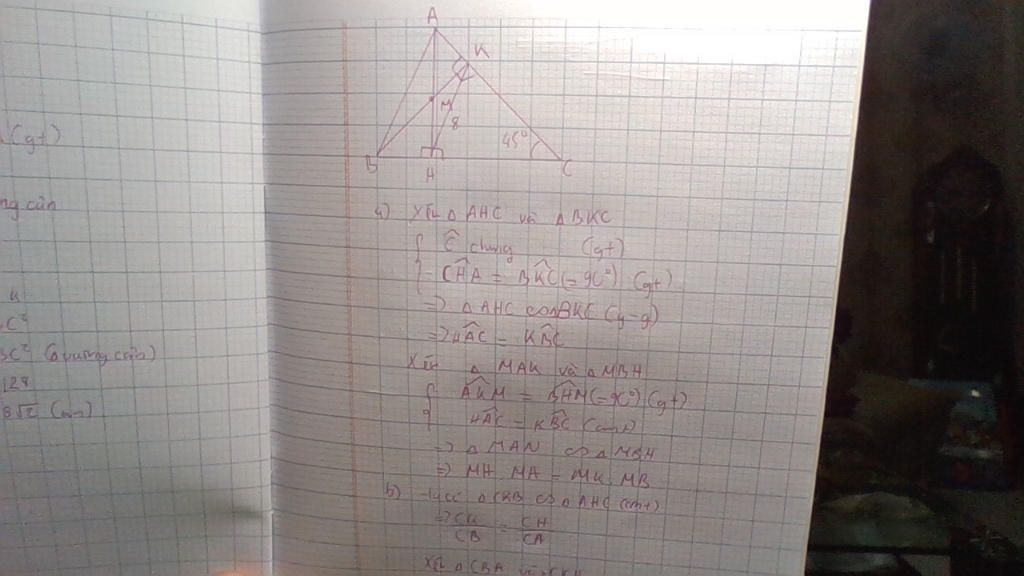 (gt)
ng cân
BC² (Δ vuông cân)
128
8√2 (cm)
A
K
M
8
45°
B
H
C
a) Xét Δ AHC và Δ BKC
Ĉ chung (gt)
CĤA = BK̂C (=90°) (gt)
=> Δ AHC ∽ Δ BKC (g-g)
=> HÂC = KB̂C
Xét Δ MAK và Δ MBH
AK̂M = BĤM (=90°) (gt)
HÂC = KB̂C (cmt)
=> Δ MAK ∽ Δ MBH
=> MH. MA = MK. MB
b) Δ CKB ∽ Δ AHC (cmt)
=> CK/CB = CH/CA
Xét Δ CBA và